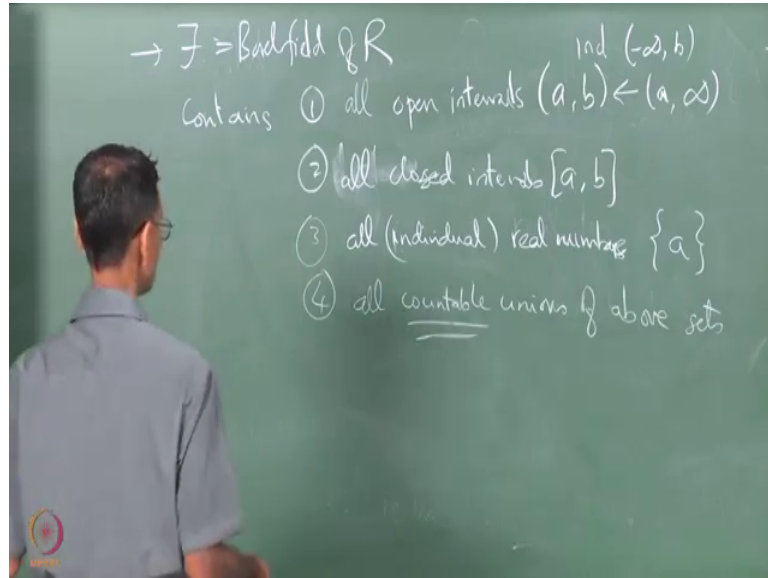 → F ≡ Borel field of R
incl (-∞, b)
Contains ① all open intervals (a, b) ← (a, ∞)
② all closed intervals [a, b]
③ all (individual) real numbers {a}
④ all countable unions of above sets